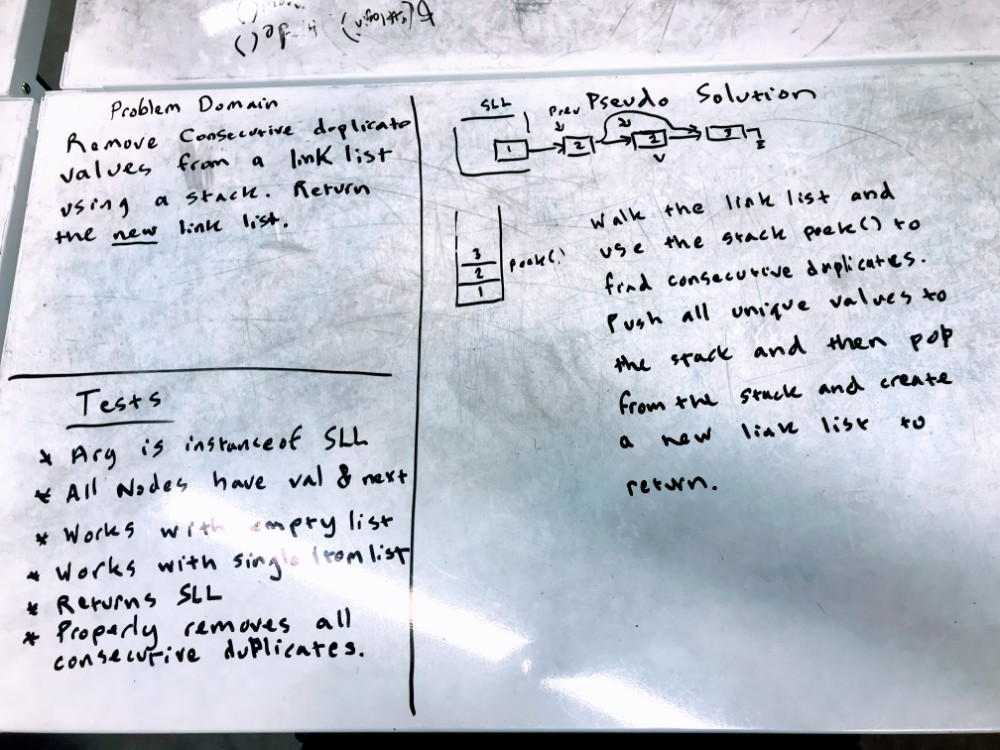 Problem Domain
Remove Consecutive duplicate
values from a link list
using a stack. Return
the new link list.
Tests
* Arg is instanceof SLL
* All Nodes have val & next
* Works with empty list
* Works with single item list
* Returns SLL
* Properly removes all
consecutive duplicates.
Pseudo Solution
SLL
Prev
1
2
2
3
3
2
1
peek()
Walk the link list and
use the stack peek() to
find consecutive duplicates.
Push all unique values to
the stack and then pop
from the stack and create
a new link list to
return.